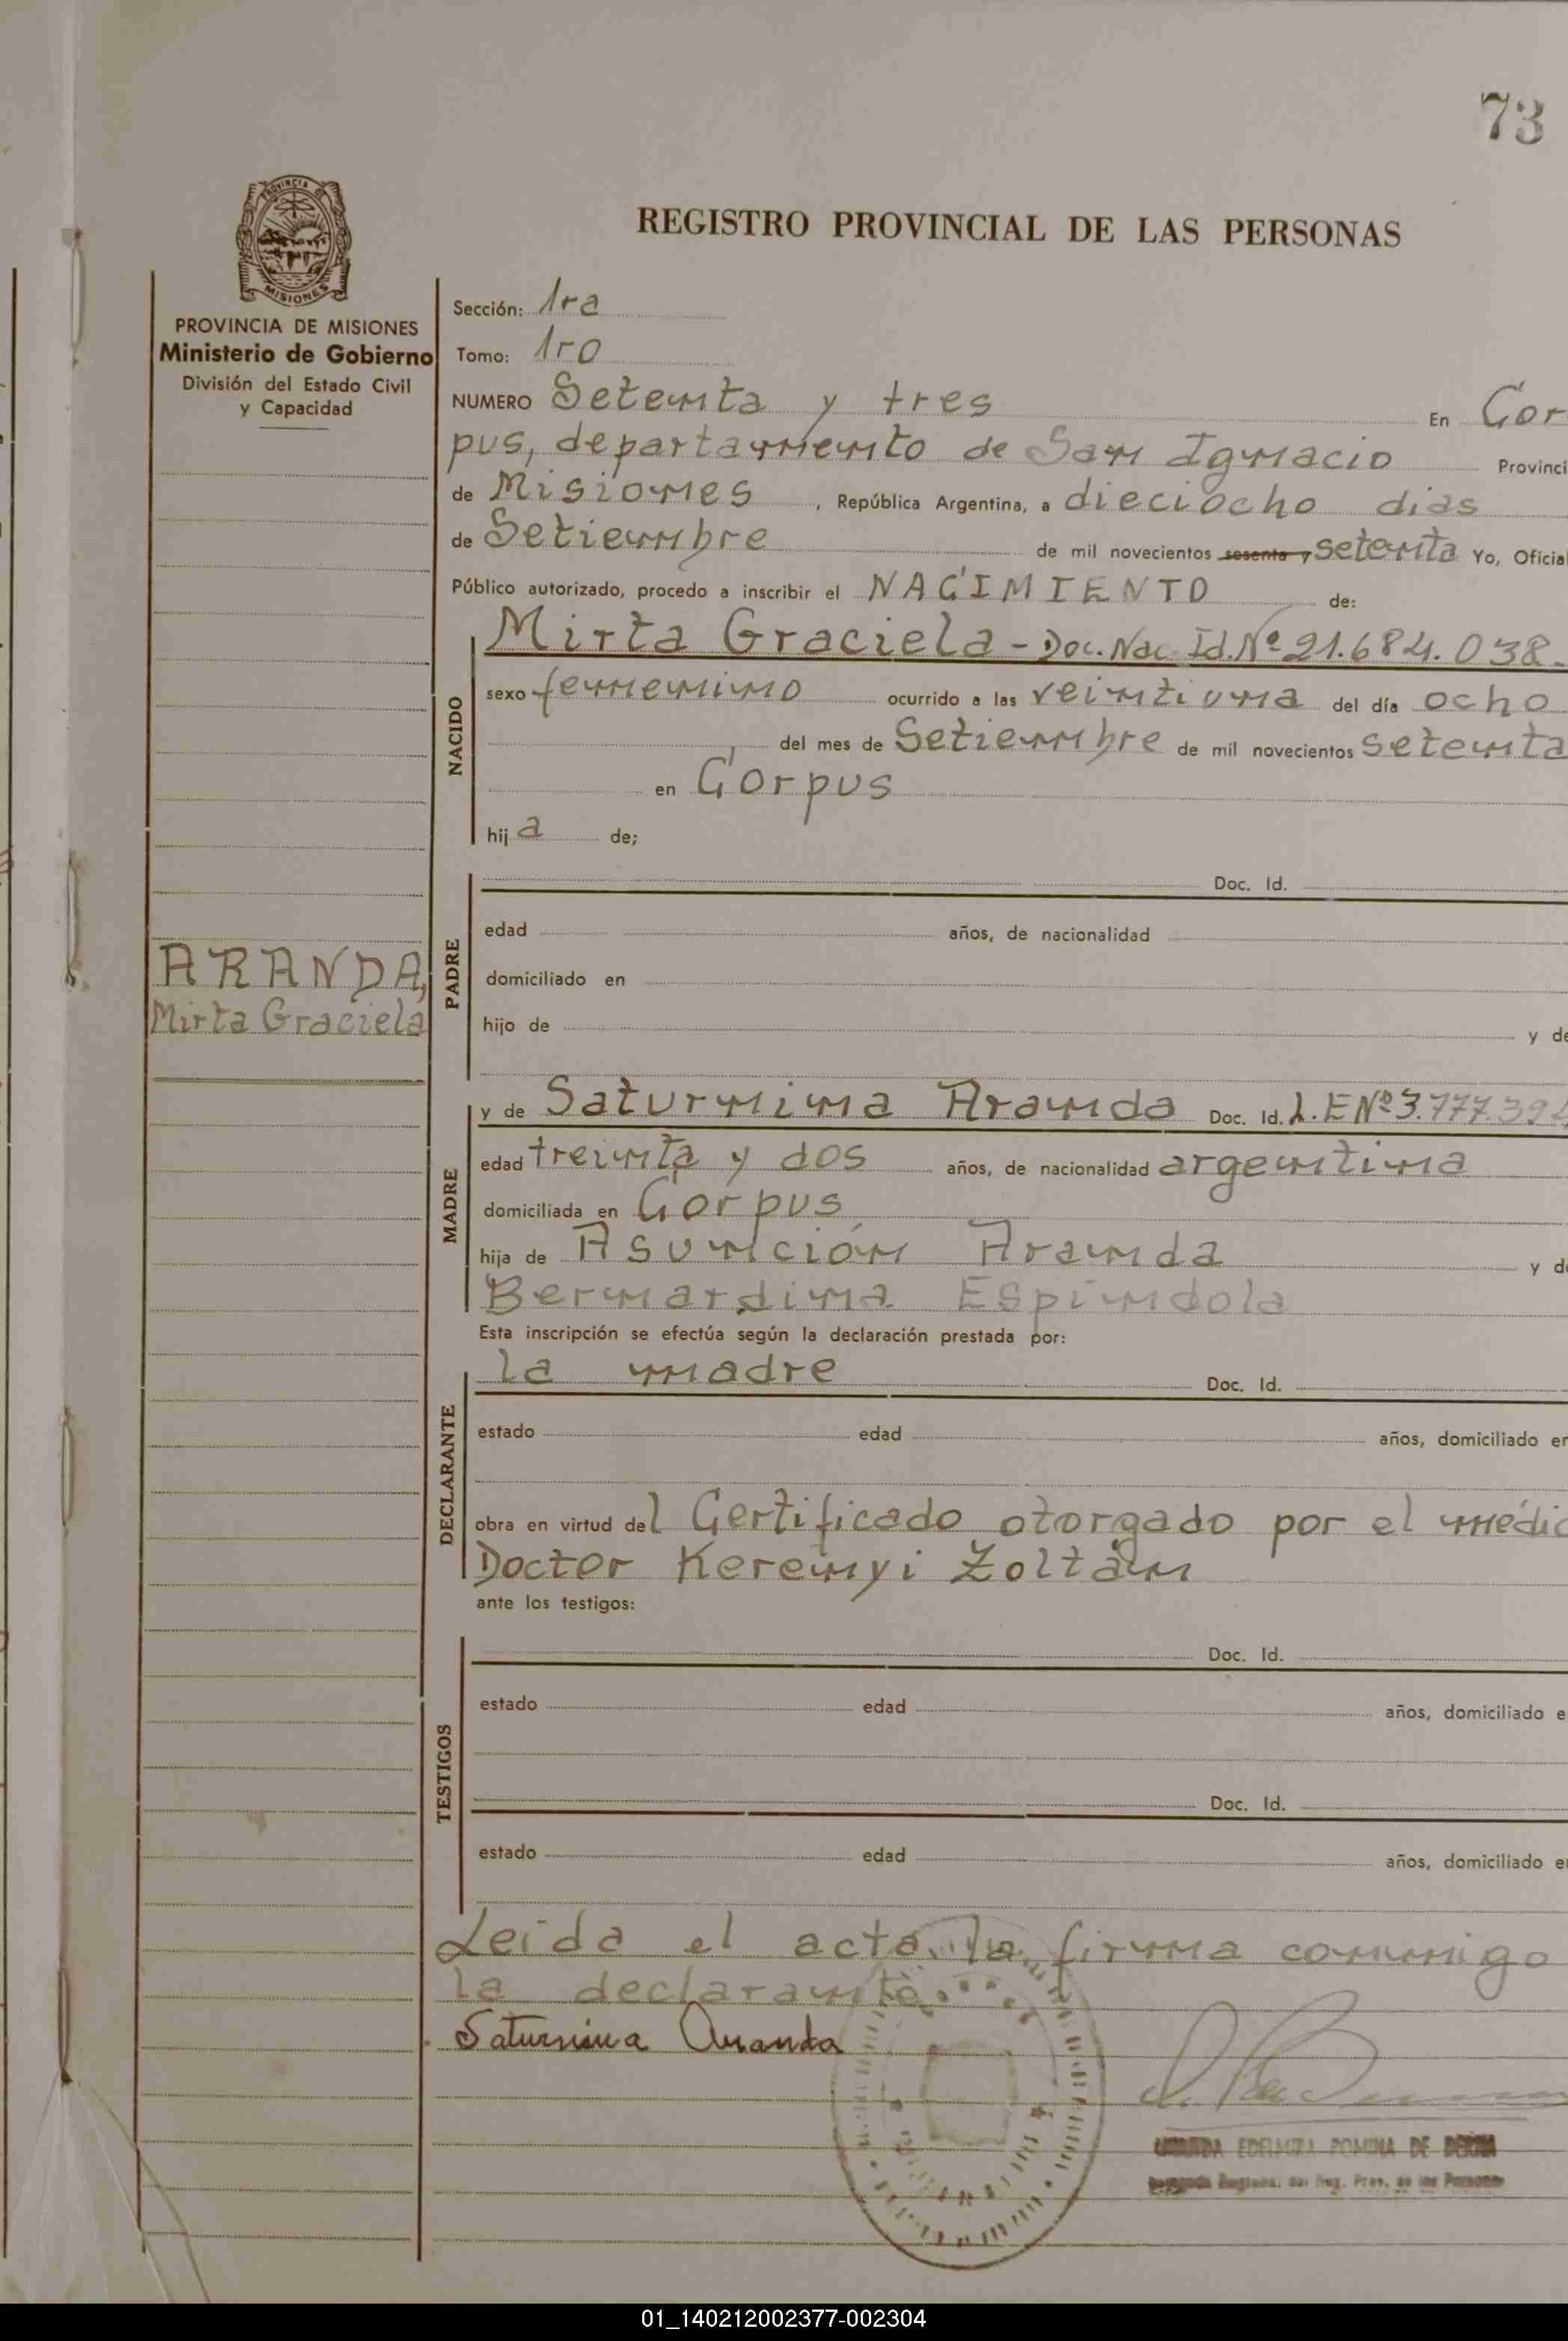 73
REGISTRO PROVINCIAL DE LAS PERSONAS
PROVINCIA DE
MISIONES
PROVINCIA DE MISIONES
Ministerio de Gobierno
División del Estado Civil
y Capacidad
Sección: 1ra
Tomo: 1ro
NUMERO Setenta y tres En Cor
pus, departamento de San Ignacio Provinci
de Misiones, República Argentina, a dieciocho dias
de Setiembre de mil novecientos sesenta y setenta Yo, Oficial
Público autorizado, procedo a inscribir el NACIMIENTO de:
NACIDO
Mirta Graciela - Doc. Nac. Id. Nº 21.684.038.
sexo femenino ocurrido a las veintiuna del día ocho
del mes de Setiembre de mil novecientos setenta
en Corpus
hija de;
ARANDA,
Mirta Graciela
PADRE
Doc. Id.
edad años, de nacionalidad
domiciliado en
hijo de y de
MADRE
y de Saturnina Aranda Doc. Id. L.E Nº 3.777.394
edad treinta y dos años, de nacionalidad argentina
domiciliada en Corpus
hija de Asunción Aranda y de
Bernardina Espindola
Esta inscripción se efectúa según la declaración prestada por:
DECLARANTE
la madre Doc. Id.
estado edad años, domiciliado en
obra en virtud del Certificado otorgado por el médic
Doctor Kerenyi Zoltán
ante los testigos:
TESTIGOS
Doc. Id.
estado edad años, domiciliado e
Doc. Id.
estado edad años, domiciliado en
Leida el acta, la firma conmigo
la declarante.
Saturnina Aranda
EDELMIRA ROMINA DE
Reg. Prov. de las Personas
01_140212002377-002304